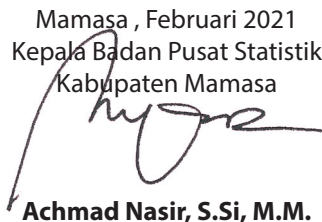 Mamasa , Februari 2021
Kepala Badan Pusat Statistik
Kabupaten Mamasa
Achmad Nasir, S.Si, M.M.